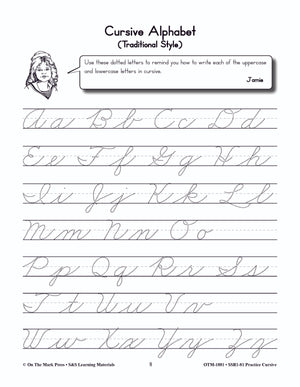 Cursive Alphabet
(Traditional Style)
Use these dotted letters to remind you how to write each of the uppercase
and lowercase letters in cursive.
Jamie
Aa Bb Cc Dd
Ee Ff Gg Hh
Ii Jj Kk Ll
Mm Nn Oo
Pp Qq Rr Ss
Tt Uu Vv
Ww Xx Yy Zz
© On The Mark Press • S&S Learning Materials 8 OTM-1801 • SSR1-81 Practice Cursive